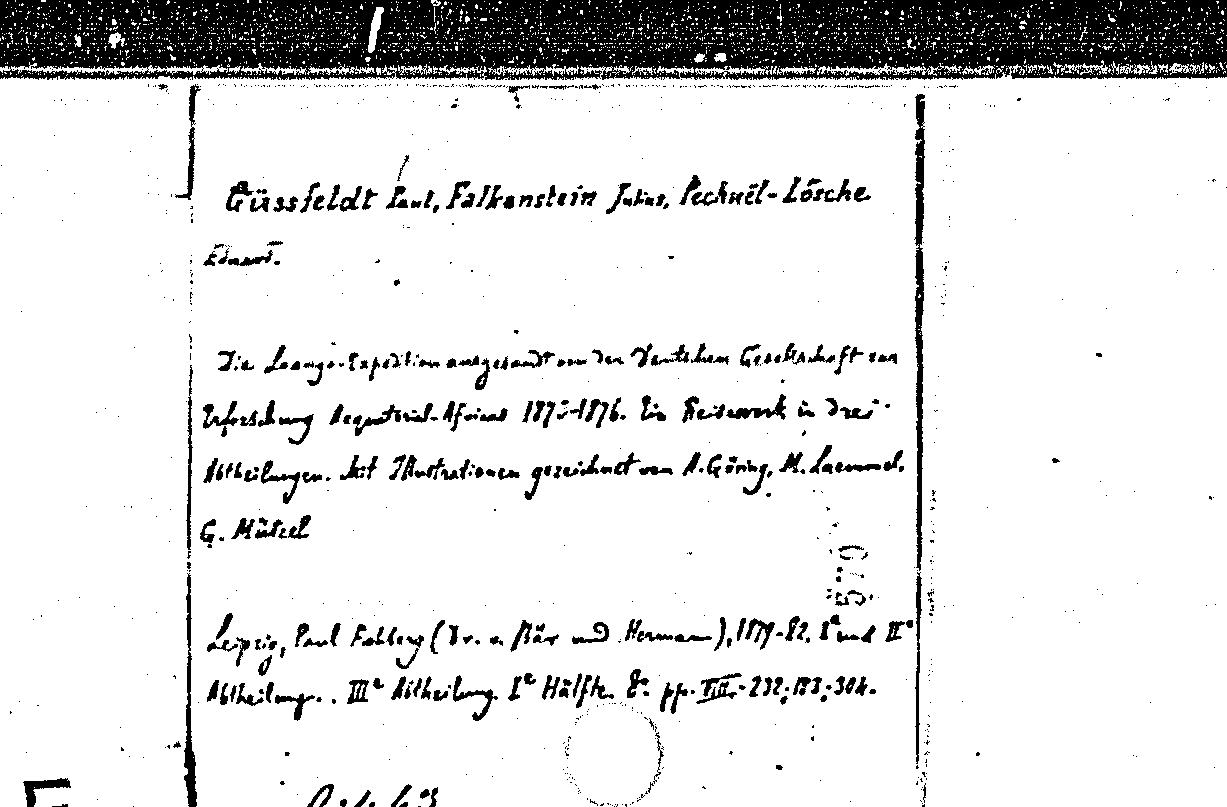 Güssfeldt Paul, Falkenstein Julius, Pechuël-Lösche
Eduard.
Die Loango-Expedition ausgesandt von der Deutschen Gesellschaft zur
Erforschung Aequatorial-Africas 1873-1876. Ein Reisewerk in drei
Abtheilungen. Mit Illustrationen gezeichnet von A. Göring, M. Laemmel,
G. Mützel
5779
Leipzig, Paul Frohberg (Dr. v. Bär und Hermann), 1879-82. Ie und IIe
Abtheilung. . IIIe Abtheilung. Ie Hälfte. 8°. pp. VIII.-232;-183;-304.